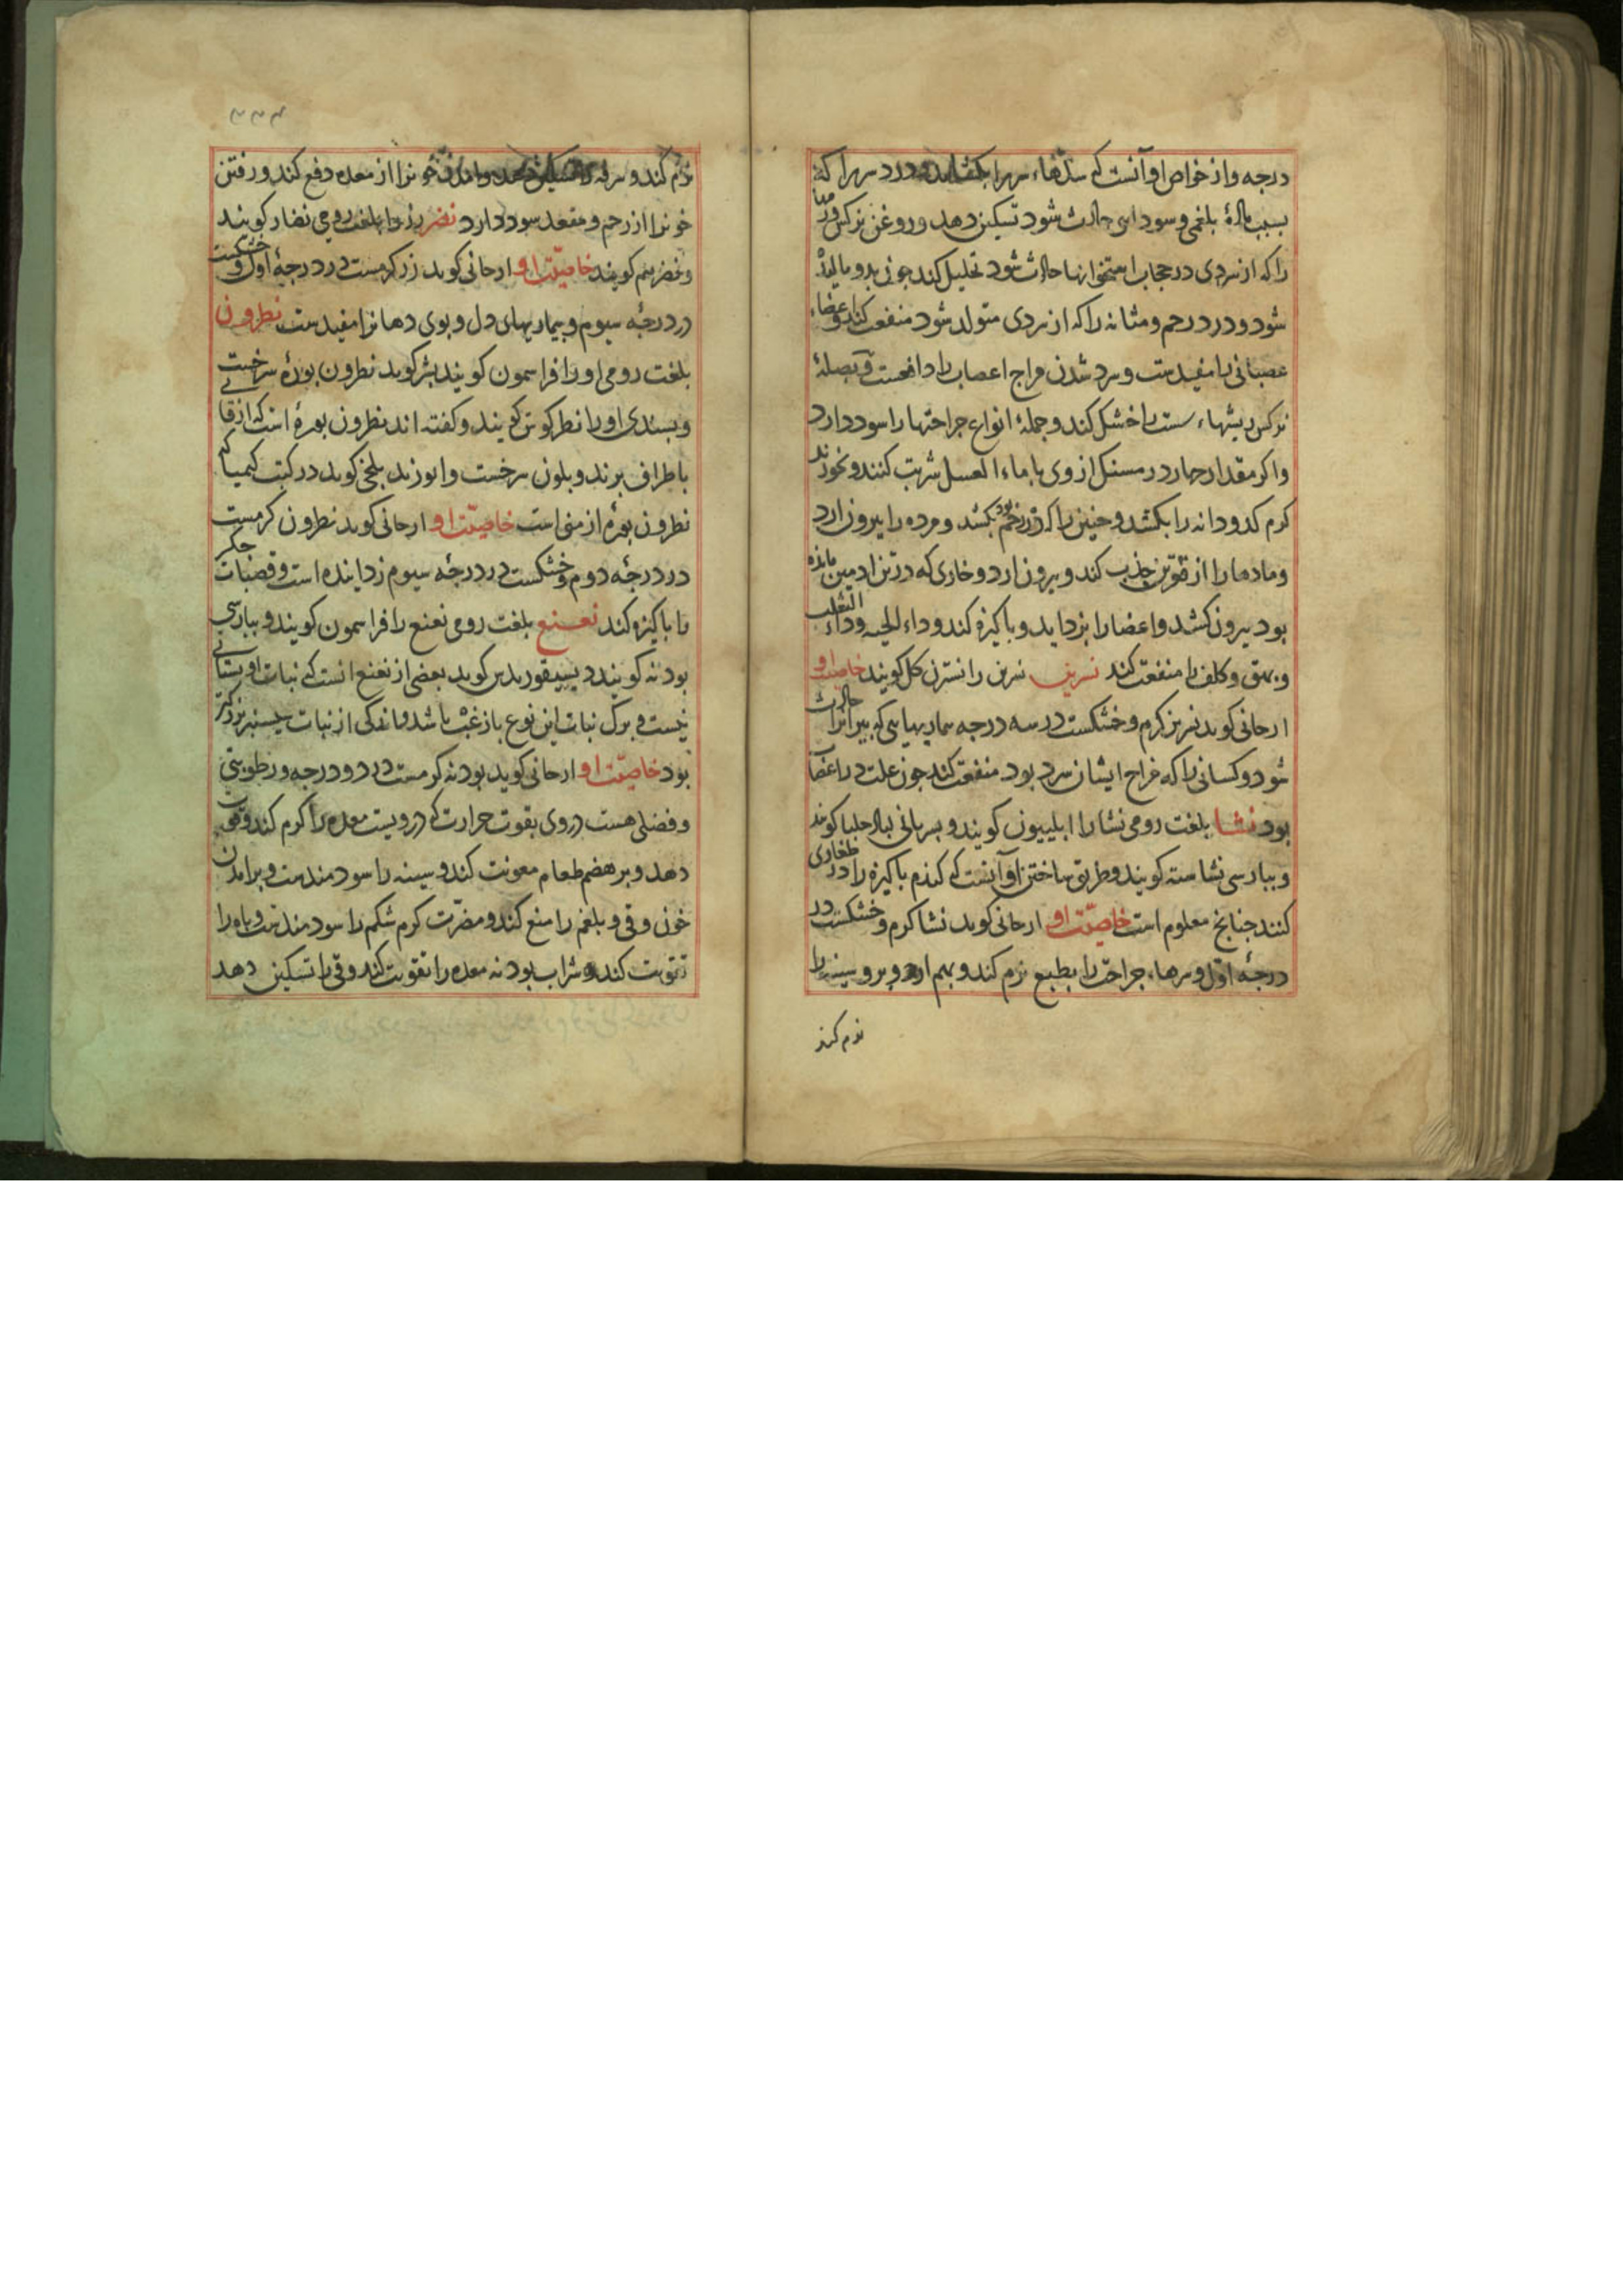 درجه و از خواص او آنست که سدّهاء سر را بکشاید و درد سر را که
بسبب مادهٔ بلغمی و سوداوی حادث شود تسکین دهد و روغن نرکس ورمها
را که از سردی در حجاب استخوانها حادث شود تحلیل کند جون بدو مالیده
شود و درد رحم و مثانه را که از سردی متولد شود منفعت کند و اعضاء
عصبانی را مفیدست و سرد شدن مزاج اعصاب را دافعست و بصلهٔ
نرکس ریشهاء را خشک کند و جملهٔ انواع جراحتها را سود دارد
واکر مقدار جهار درمسنک از وی با ماء العسل شربت کنند و بخورند
کرم کدودانه را بکشد و جنین را که در رحم بکشد و مرده را بیرون ارد
و مادها را از قوتن جذب کند و بیرون ارد و خاری که در تن ادمین مانده
بود بیرون کشد و اعضا را بزداید و باکیزه کند و داء الحیه و داء الثعلب
و بهق و کلف را منفعت کند نسرین نسرین را نسترن کل کویند خاصیّت او
ارحانی کوید نسرین کرم و خشکست در سه درجه بیماریهایی که بیرانرا حادث
شود و کسانی را که مزاج ایشان سرد بود منفعت کند جون علت در اعضا
بود نشا بلغت رومی نشا را ابلیبون کویند و بسریانی حلبا کویند
و ببارسی نشاسته کویند و طریق ساختن او آنست که کندم باکیزه را در طغاری
کنند جنانج معلوم است خاصیّت او ارحانی کوید نشا کرم و خشکست در
درجهٔ اوّل و سرهاء جراحت را بطبع نرم کند و بهم ارد و برو سینه را
نرم کند
۳۳۳
نرم کند و سرفه را تسکین دهد و خونرا از معده دفع کند و رفتن
خونرا از رحم و مقعد سود دارد نضر زر را بلغت رومی نضار کویند
و نضر هم کویند خاصیّت او ارحانی کوید زر کرمست در درجهٔ اول و خشکست
در درجهٔ سیوم و بیماریهای دل و بوی دهانرا مفیدست نطرون
بلغت رومی او را افراسمون کویند بشر کوید نطرون بورهٔ سرخست
و بسندی او را نطرکوش کویند و کفته اند نطرون بورهٔ است که از قا
باطراف برند و بلون سرخست و ابوزید بلخی کوید در کتب کیمیا که
نطرون بورهٔ ارمنی است خاصیّت او ارحانی کوید نطرون کرمست
در درجهٔ دوم و خشکست در درجهٔ سیوم زداینده است و قصبات جکر
را باکیزه کند نعنع بلغت رومی نعنع را افراسمون کویند و ببارسی
بودنه کویند دیسیقوریدس کوید بعضی از نعنع انست که نبات او بستانی
نیست و برک نبات این نوع باشد و اندکی از نبات سیسنبر بزرکتر
بود خاصیّت او ارحانی کوید بودنه کرمست در دو درجه و رطوبتی
و فضلی هست در وی بقوت حرارت که درویست معده را کرم کند و قوت
دهد و بر هضم طعام معونت کند و سینه را سودمندست و برامدن
خون و قی و بلغم را منع کند و مضرّت کرم شکم را سودمندست و باه را
تقویت کند و شراب بودنه معده را تقویت کند و قی را تسکین دهد